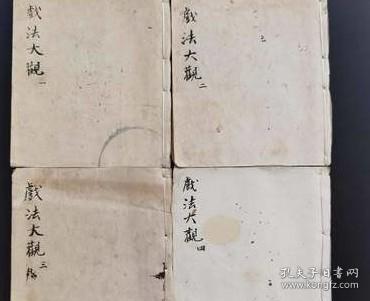 戲法大觀 一
戲法大觀 二
戲法大觀 三
戲法大觀 四
孔夫子旧书网